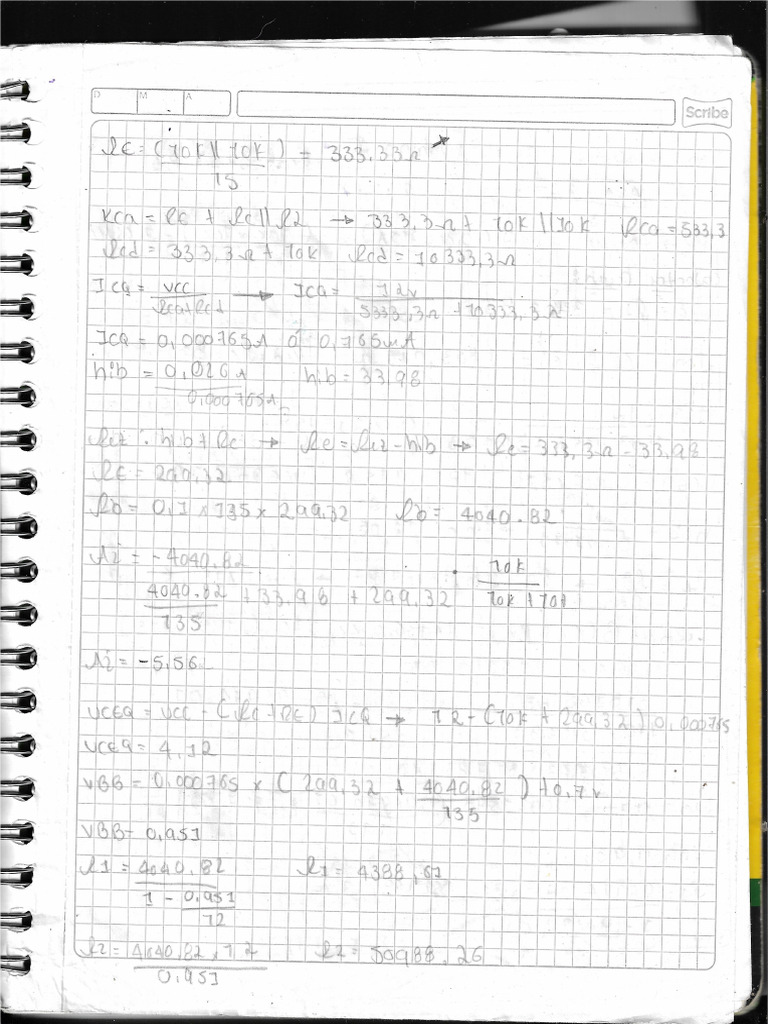 D M A
Scribe
Re = (10k || 10k) / 15 = 333.33Ω
Rca = Re + Rc || Rl → 333,3Ω + 10k || 10k Rca = 5333,3
Rcd = 333,3Ω + 10k Rcd = 10333,3Ω
ICQ = VCC / Rca+Rcd → ICQ = 12v / 5333,3Ω + 10333,3Ω
ICQ = 0,000765A ó 0,765mA
hib = 0,026v / 0,000765A hib = 33.98
hib + Re → Re = - hib → Re = 333,3Ω - 33.98
RE = 299,32
Rb = 0,1 x 135 x 299,32 Rb = 4040.82
Ai = -4040.82 / 4040.82/135 + 33.98 + 299,32 · 10k / 10k + 10k
Ai = -5.56
VCEQ = VCC - (Rc + RE) ICQ → 12 - (10k + 299,32) 0,000765
VCEQ = 4,12
VBB = 0.000765 x ( 299,32 + 4040.82 / 135 ) + 0.7v
VBB = 0,951
R1 = 4040.82 / 1 - 0.951/12 R1 = 4388,61
R2 = 4040.82 x 12 / 0.951 R2 = 50988.26